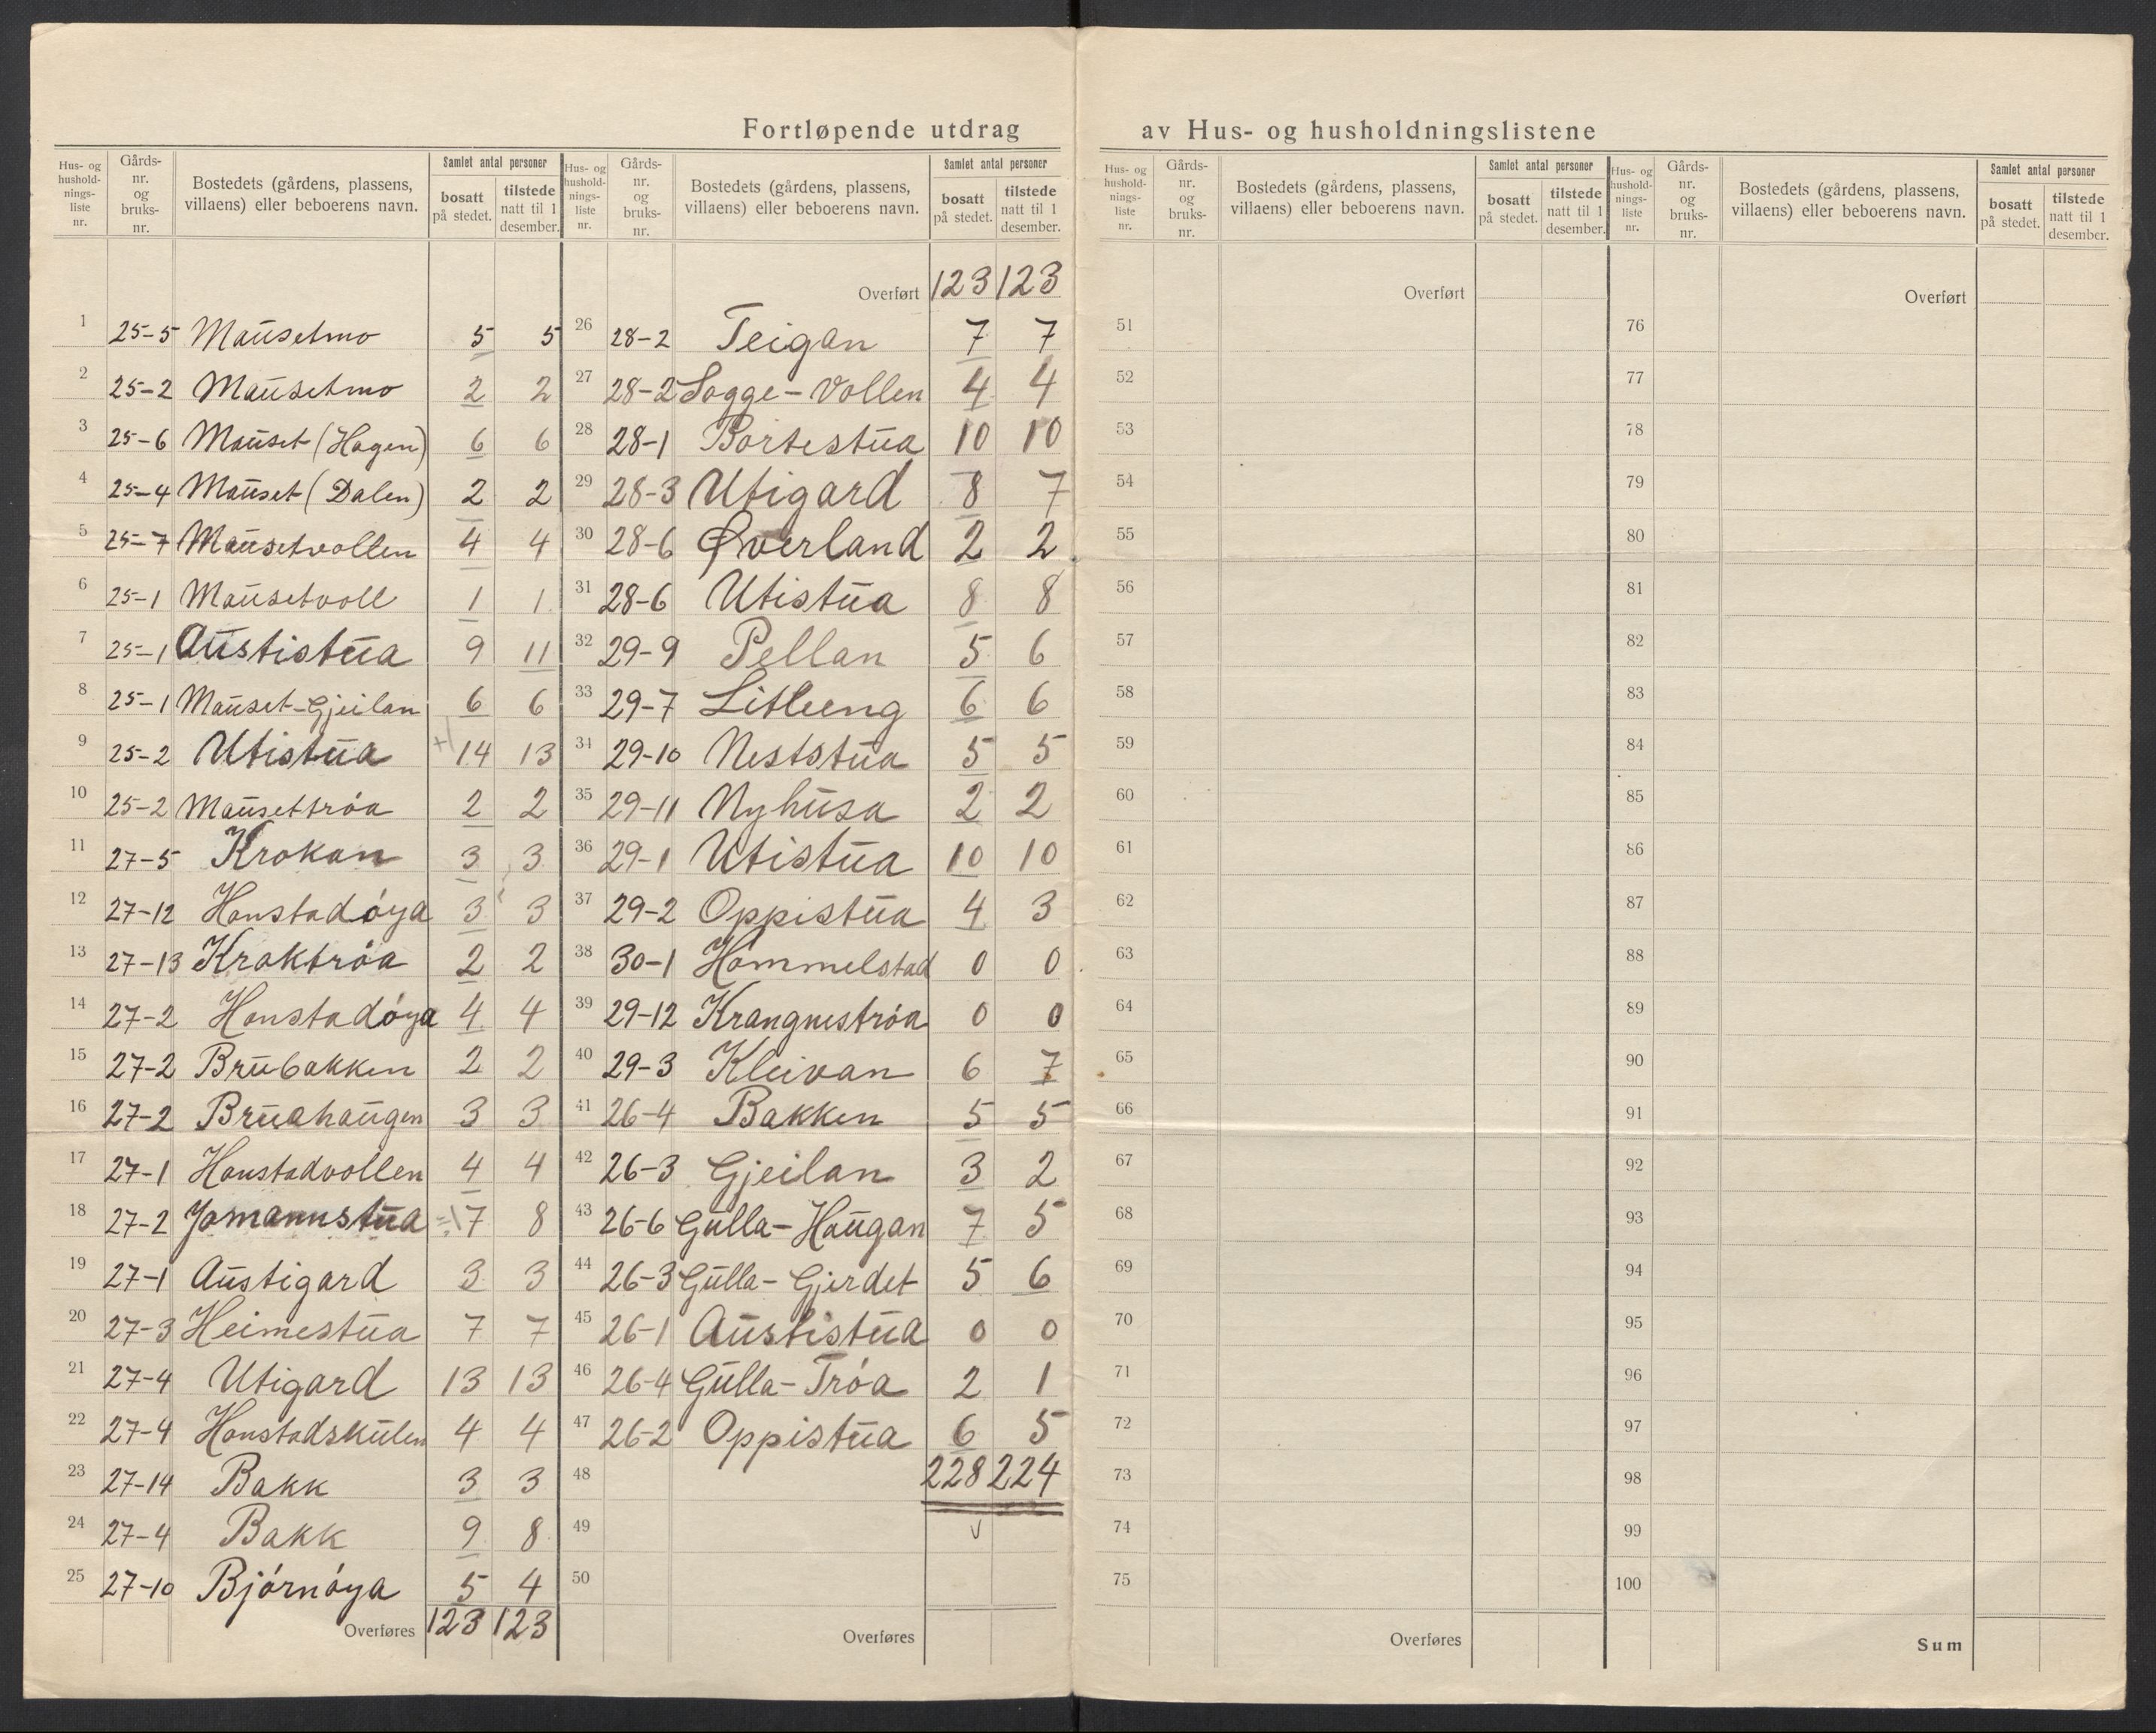 Fortløpende utdrag av Hus- og husholdningslistene
Hus- og hushold- nings- liste nr. | Gårds- nr. og bruks- nr. | Bostedets (gårdens, plassens, villaens) eller beboerens navn. | Samlet antal personer | bosatt på stedet. | tilstede natt til 1 desember.
1 25-5 Mausetmo 5 5
2 25-2 Mausetmo 2 2
3 25-6 Mauset (Hagen) 6 6
4 25-4 Mauset (Dalen) 2 2
5 25-7 Mausetvollen 4 4
6 25-1 Mausetvoll 1 1
7 25-1 Austistua 9 11
8 25-1 Mauset-Gjeilan 6 6
9 25-2 Utistua +1 14 13
10 25-2 Mausettróa 2 2
11 27-5 Krokan 3 3
12 27-12 Honstadóya 3 3
13 27-13 Kroktróa 2 2
14 27-2 Honstadóya 4 4
15 27-2 Brubakken 2 2
16 27-2 Bruahaugen 3 3
17 27-1 Honstadvollen 4 4
18 27-2 Jomannstua 7 8
19 27-1 Austigard 3 3
20 27-3 Heimestua 7 7
21 27-4 Utigard 13 13
22 27-4 Honstadskulen 4 4
23 27-14 Bakk 3 3
24 27-4 Bakk 9 8
25 27-10 Bjórnóya 5 4
Overføres 123 123
Hus- og hushold- nings- liste nr. | Gårds- nr. og bruks- nr. | Bostedets (gårdens, plassens, villaens) eller beboerens navn. | Samlet antal personer | bosatt på stedet. | tilstede natt til 1 desember.
Overført 123 123
26 28-2 Teigan 7 7
27 28-2 Sogge-Vollen 4 4
28 28-1 Bortestua 10 10
29 28-3 Utigard 8 7
30 28-6 Øverland 2 2
31 28-6 Utistua 8 8
32 29-9 Pellan 5 6
33 29-7 Litleeng 6 6
34 29-10 Neststua 5 5
35 29-11 Nyhusa 2 2
36 29-1 Utistua 10 10
37 29-2 Oppistua 4 3
38 30-1 Hommelstad 0 0
39 29-12 Krangnestróa 0 0
40 29-3 Kleivan 6 7
41 26-4 Bakken 5 5
42 26-3 Gjeilan 3 2
43 26-6 Gulla-Haugan 7 5
44 26-3 Gulla-Gjerdet 5 6
45 26-1 Austistua 0 0
46 26-4 Gulla-Tróa 2 1
47 26-2 Oppistua 6 5
48 228 224
49
50
Overføres
Hus- og hushold- nings- liste nr. | Gårds- nr. og bruks- nr. | Bostedets (gårdens, plassens, villaens) eller beboerens navn. | Samlet antal personer | bosatt på stedet. | tilstede natt til 1 desember.
Overført
51
52
53
54
55
56
57
58
59
60
61
62
63
64
65
66
67
68
69
70
71
72
73
74
75
Overføres
Hus- og hushold- nings- liste nr. | Gårds- nr. og bruks- nr. | Bostedets (gårdens, plassens, villaens) eller beboerens navn. | Samlet antal personer | bosatt på stedet. | tilstede natt til 1 desember.
Overført
76
77
78
79
80
81
82
83
84
85
86
87
88
89
90
91
92
93
94
95
96
97
98
99
100
Sum